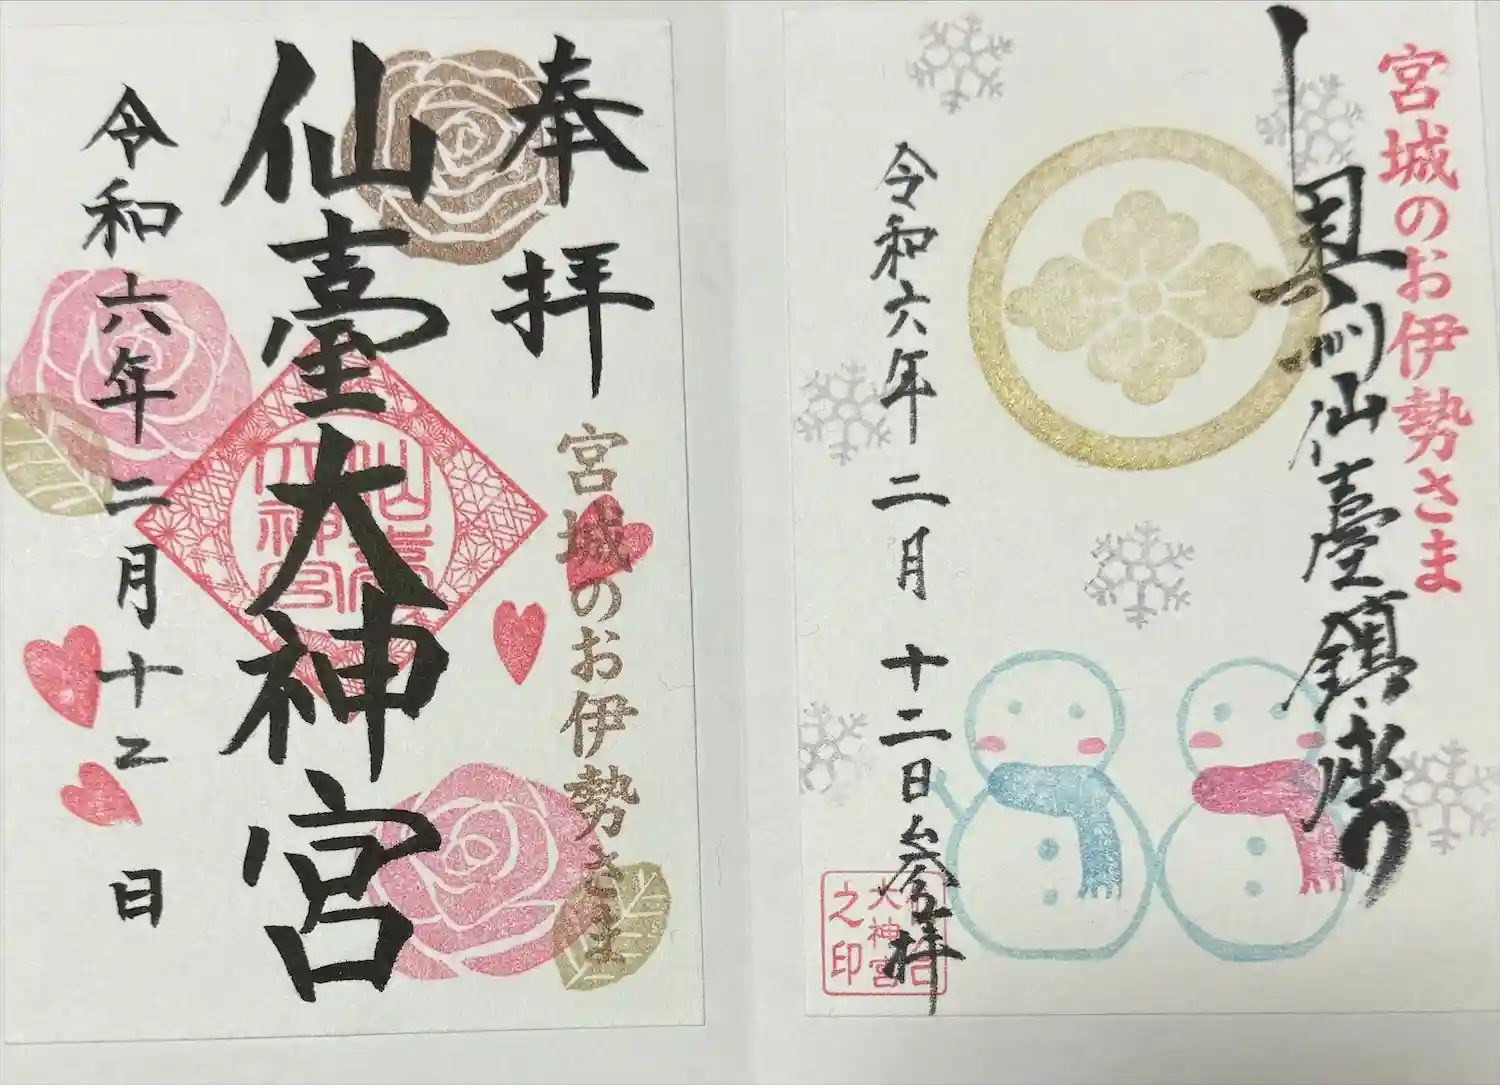 宮城のお伊勢さま
奥州仙臺鎮座
令和六年二月十二日参拝
大神宮
之印
奉拝
宮城のお伊勢さま
仙臺大神宮
大神宮
令和六年二月十二日